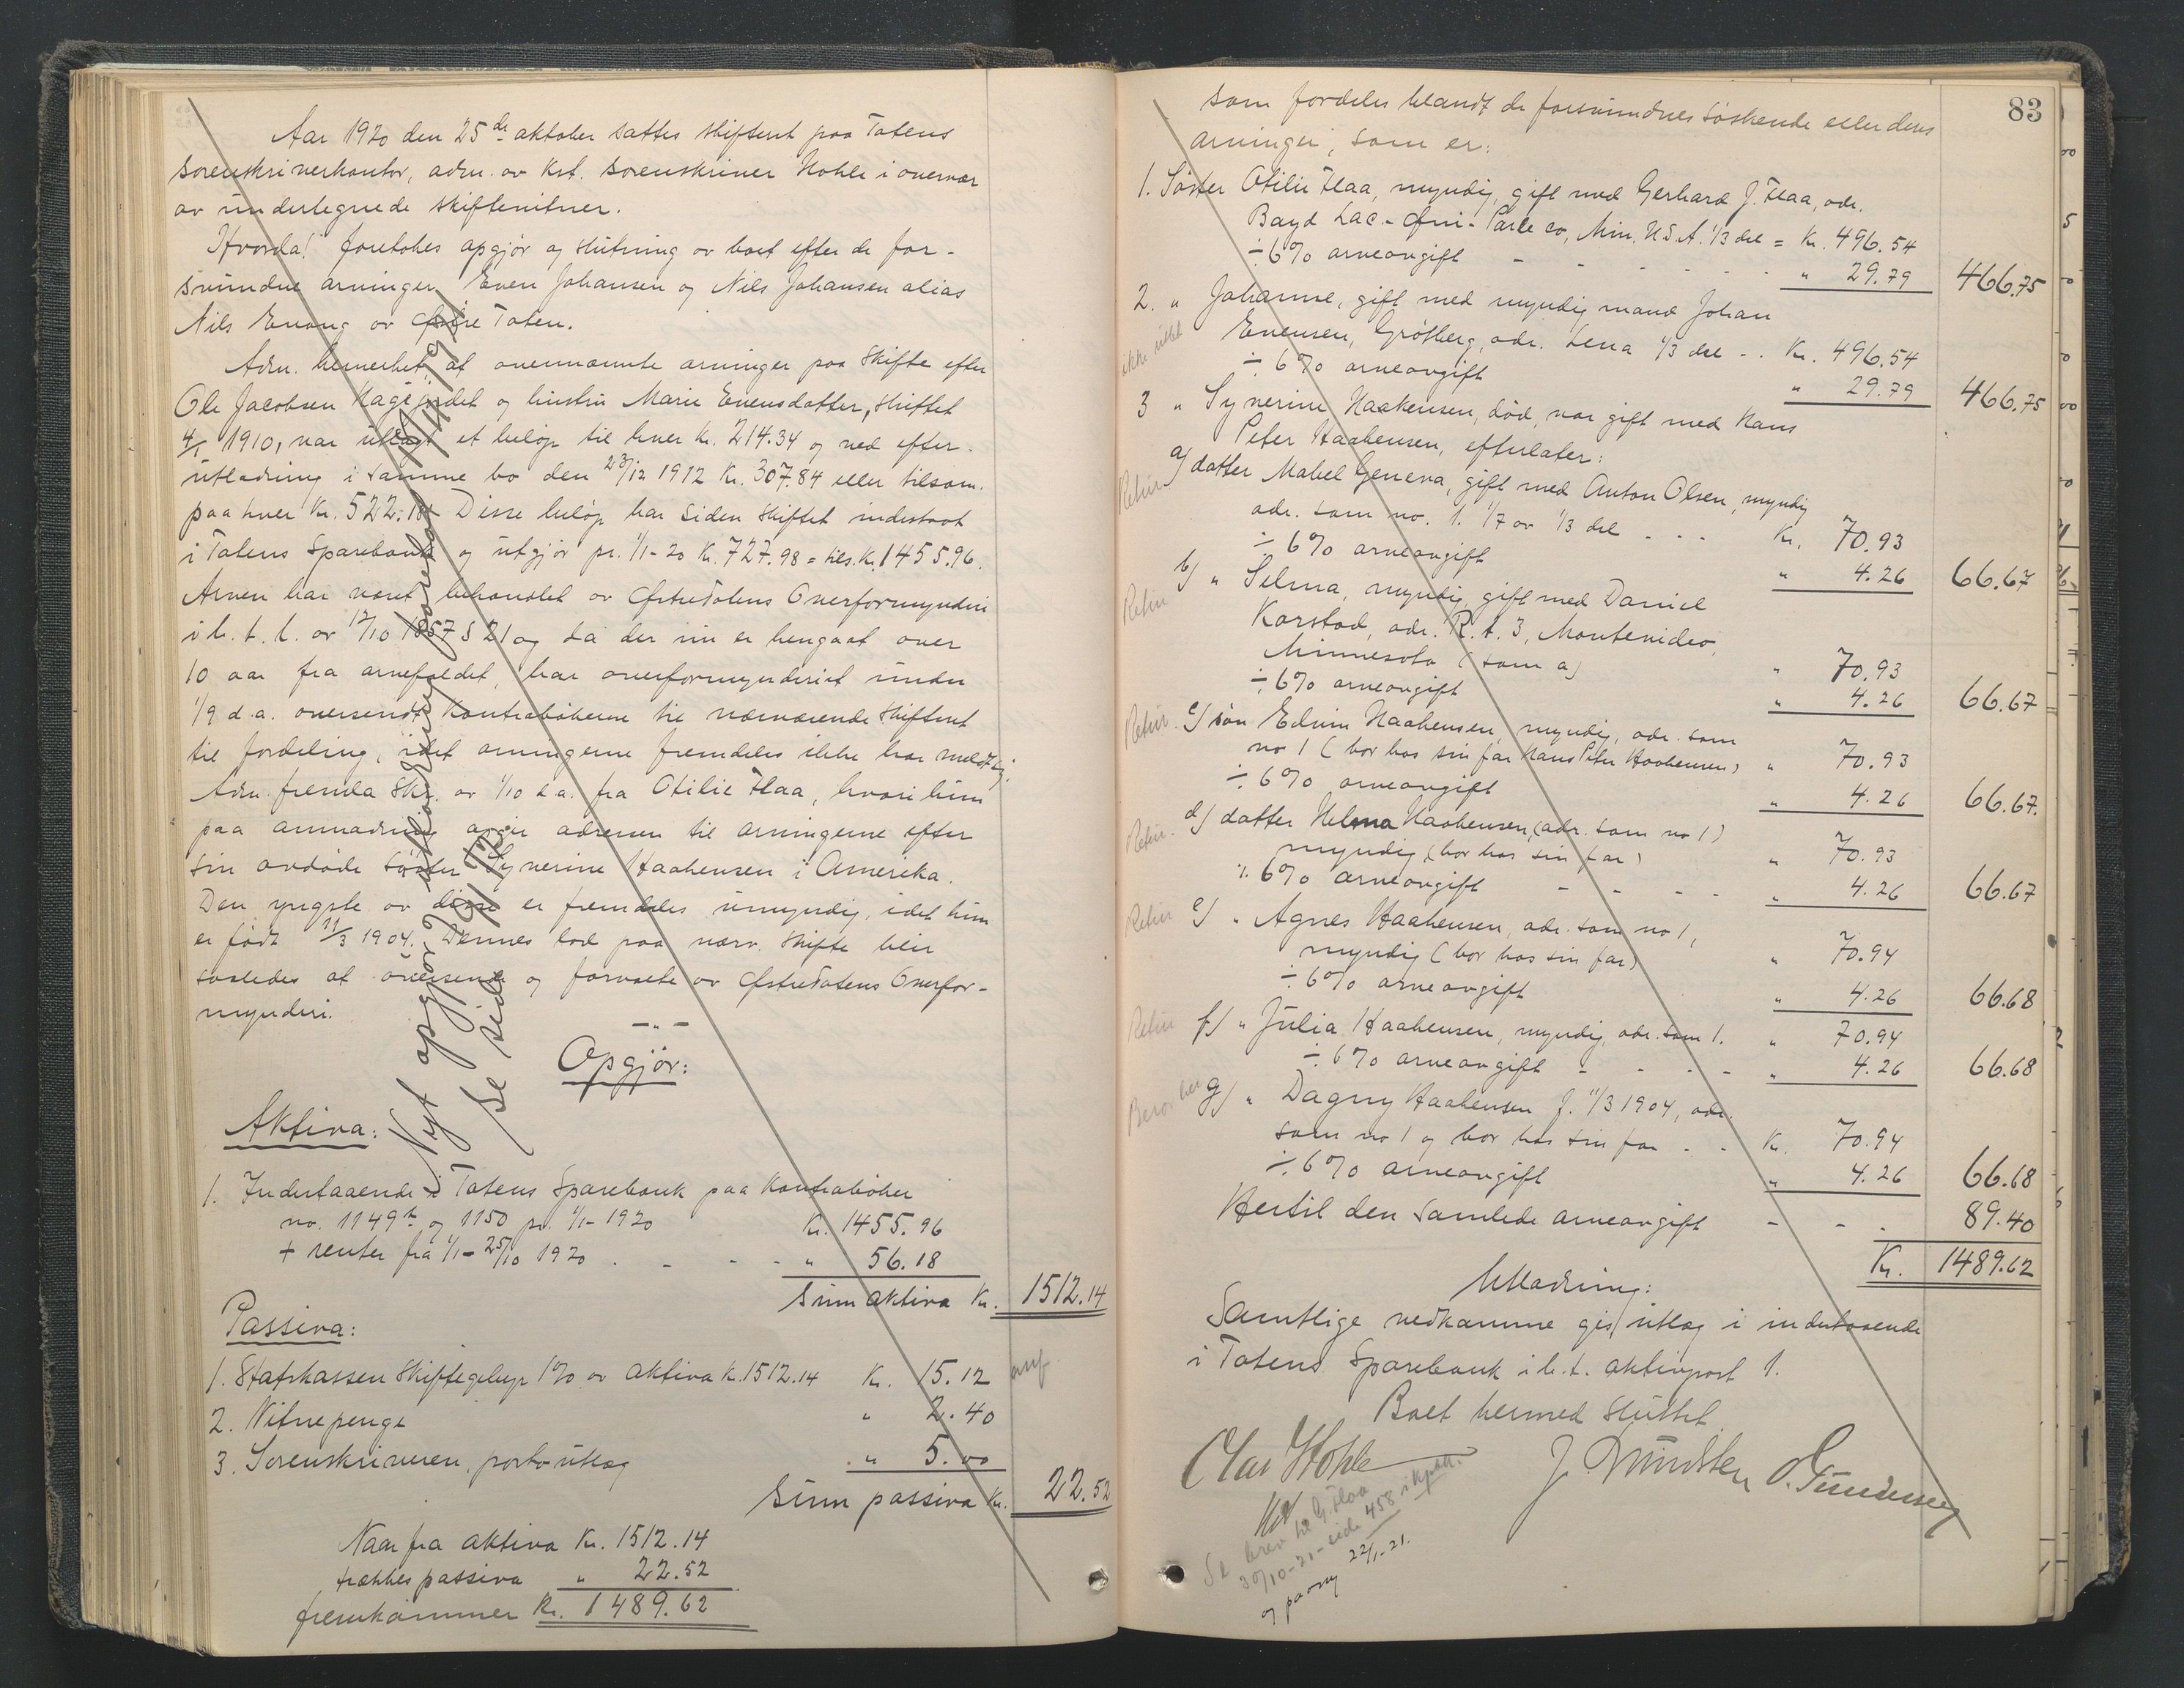 Aar 1920 den 25de oktober sattes skifteret paa Totens
sorenskriverkontor, adm. av Kst. sorenskriver Hohle i overvær
av undertegnede skiftevitner.
Hvorda! foretokes opgjør og slutning av boet efter de for-
svundne arvinger Even Johansen og Nils Johansen alias
Nils Evang av Østre Toten.
Adm. bemerket, at ovennævnte arvinger paa skifte efter
Ole Jacobsen Hagejordet og hustru Marie Evensdatter, sluttet
4/1 1910, var utlagt et beløp til hver Kr. 214.34 og ved efter-
utlodning i samme bo den 23/12 1912 Kr. 307.84 eller tilsam.
paa hver Kr. 522.18. Disse beløp har siden skiftet indestaat
i Totens Sparebank og utgjør pr. 1/1-20 Kr. 727.98 = tils. Kr. 1455.96.
Arven har været behandlet av Østre Totens Overformynderi
i h. t. l. av 12/10 1857 § 21 og da der nu er hengaat over
10 aar fra arvefaldet, har overformynderiet under
1/9 d.a. oversendt kontrabøkerne til nærværende skifteret
til fordeling, idet arvingerne fremdeles ikke har meldt sig.
Adm. fremla skr. av 1/10 d.a. fra Otilie Flaa, hvori hun
paa anmodning opgir adressen til arvingerne efter
sin avdøde søster Syverine Haakensen i Amerika.
Den yngste av disse er fremdeles umyndig, idet hun
er født 11/3 1904. Dennes lod paa nærv. skifte blir
saaledes at oversende og forvalte av Østre Totens Overfor-
mynderi.
Nyt opgjør utlodning foretat 17/11 1921
Se side 91
Opgjør:
Aktiva:
1. Indestaaende i Totens Sparebank paa Kontrabøker
no. 1149 og 1150 pr. 1/1-1920 Kr. 1455.96
+ renter fra 1/1-25/10 1920 . - - - " 56.18
Sum aktiva Kr. 1512.14
Passiva:
1. Statskassen Skiftegebyr 1% av aktiva K. 1512.14 Kr. 15.12 anf.
2. Vitnepenge " 2.40
3. Sorenskriveren, porto utlæg " 5.00
Sum passiva Kr. 22.52
Naar fra aktiva Kr. 1512.14
trækkes passiva " 22.52
fremkommer Kr. 1489.62
83
som fordeles blandt de forsvundnes søskende eller deres
arvinger, som er:
1. Søster Otilie Flaa, myndig, gift med Gerhard J. Flaa, adr.
Boyd Lac-Qui-Parle co, Min. U.S.A. 1/3 del = Kr. 496.54
÷ 6% arveavgift - - - - " 29.79 466.75
2. " Johanne, gift med myndig mand Johan
Evensen, Grøtberg, adr. Lena 1/3 del - . Kr. 496.54
ikke uttat
÷ 6% arveavgift " 29.79 466.75
3 " Syverine Haakensen, død, var gift med Hans
Peter Haakensen, efterlater:
Retur a/ datter Mabel Geneva, gift med Anton Olsen, myndig
adr. som no. 1. 1/7 av 1/3 del - - - Kr. 70.93
÷ 6% arveavgift " 4.26 66.67
Retur b/ " Selma, myndig, gift med Daniel
Karstad, adr. R. A. 3, Montevideo,
Minnesota (som a) " 70.93
÷ 6% arveavgift " 4.26 66.67
Retur. c/ søn Edvin Haakensen, myndig, adr. som
no 1 (bor hos sin far Hans Peter Haakensen) " 70.93
÷ 6% arveavgift " 4.26 66.67.
Retur. d/ datter Helma Haakensen, (adr. som no 1)
myndig (bor hos sin far) " 70.93
÷ 6% arveavgift - - - - " 4.26 66.67
Retur e/ " Agnes Haakensen, adr. som no 1,
myndig (bor hos sin far) " 70.94
÷ 6% arveavgift " 4.26 66.68
Retur f/ " Julia Haakensen, myndig, adr. som 1. " 70.94
÷ 6% arveavgift - - - - " 4.26 66.68
Beror her g/ " Dagny Haakensen f. 11/3 1904, adr.
som no 1 og bor hos sin far - - K. 70.94
÷ 6% arveavgift " 4.26 66.68
Hertil den samlede arveavgift - - . 89.40
Kr. 1489.62
Utlodning:
Samtlige vedkomne gis utlæg i indestaaende
i Totens Sparebank i h. t. aktivpost 1.
Boet hermed sluttet.
Olav Hohle J. Sundsten O. Gundersen
Kst
Se brev til G. Flaa
30/10-20-side 458 i kpbk.
og paany 22/1-21.